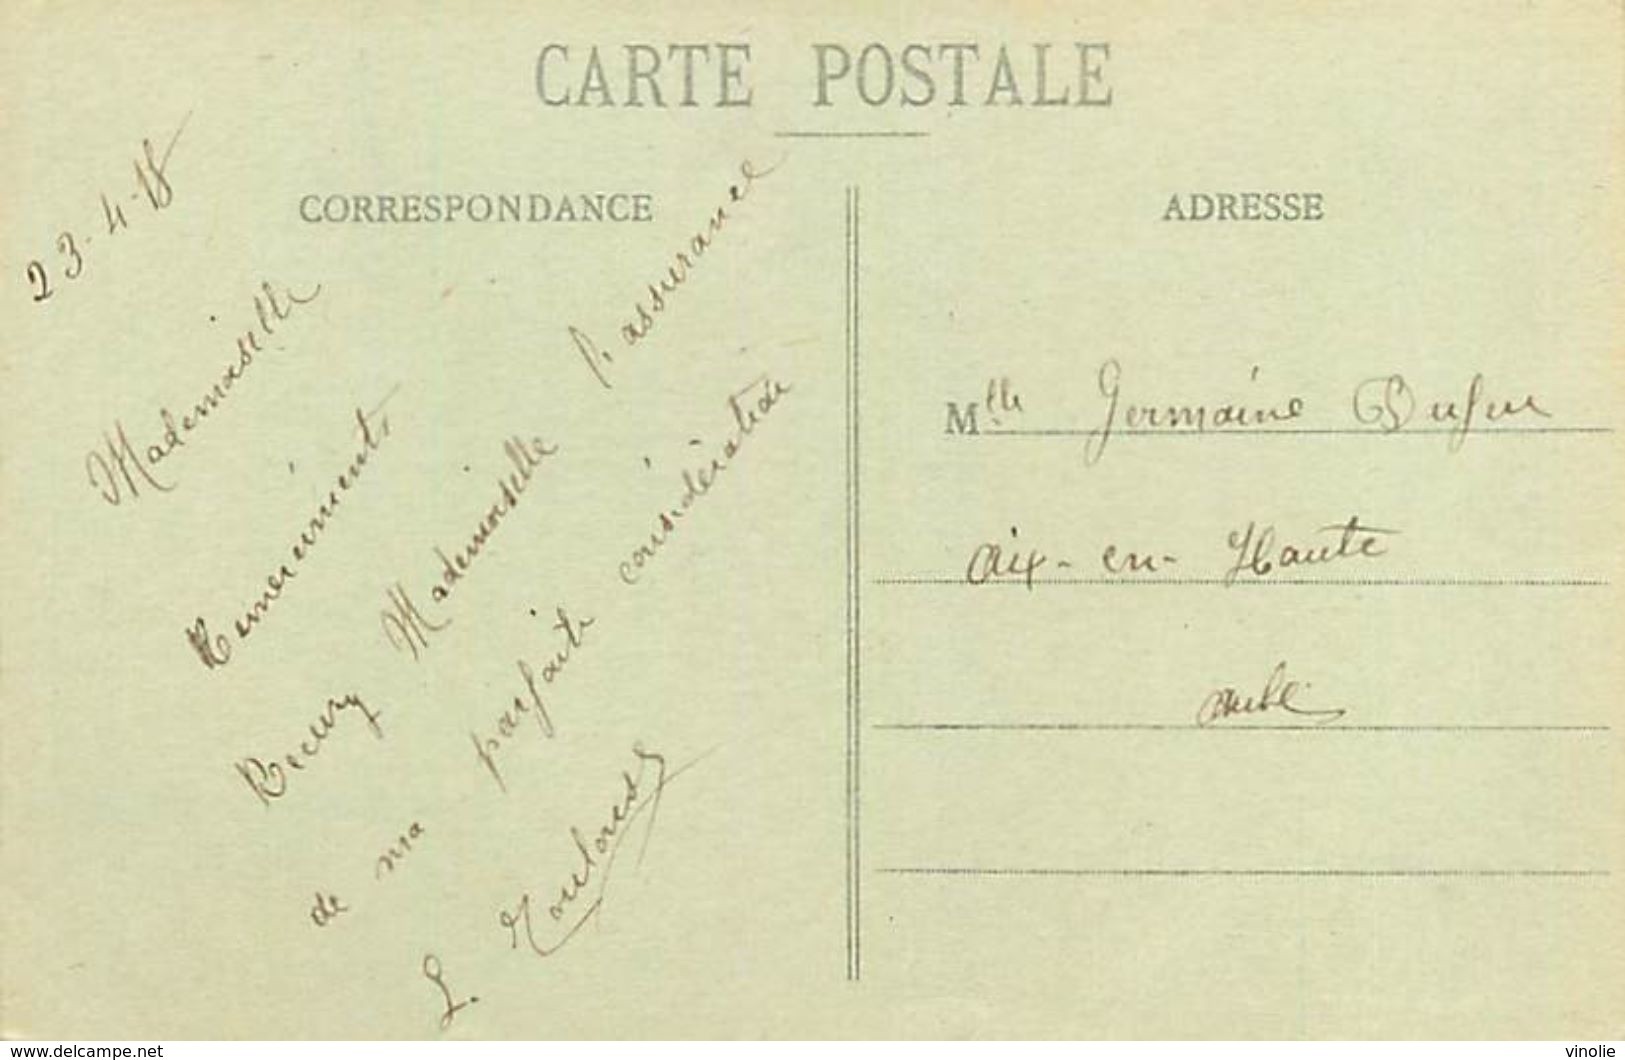 CARTE POSTALE
CORRESPONDANCE
23-4-18
Mademoiselle
Remerciments,
Recevez Mademoiselle l'assurance
de ma parfaite considération
L.
ADRESSE
Mlle Germaine
Aix-en-Haute
aube
www.delcampe.net
vinolie